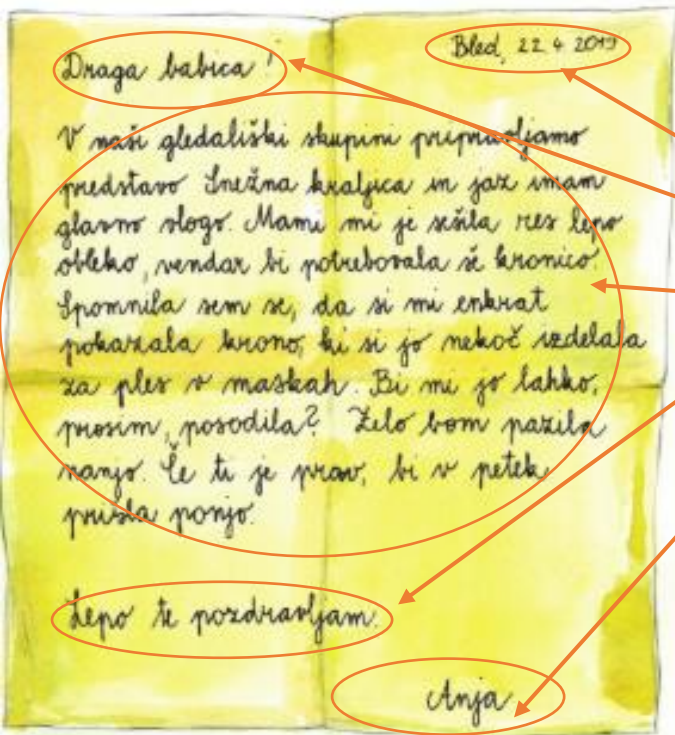 Bled, 22. 4. 2019
Draga babica!
V naši gledališki skupini pripravljamo
predstavo Snežna kraljica in jaz imam
glavno vlogo. Mami mi je sešila res lepo
obleko, vendar bi potrebovala še kronico.
Spomnila sem se, da si mi enkrat
pokazala krono, ki si jo nekoč izdelala
za ples v maskah. Bi mi jo lahko,
prosim, posodila? Zelo bom pazila
nanjo. Če ti je prav, bi v petek
prišla ponjo.
Lepo te pozdravljam.
Anja